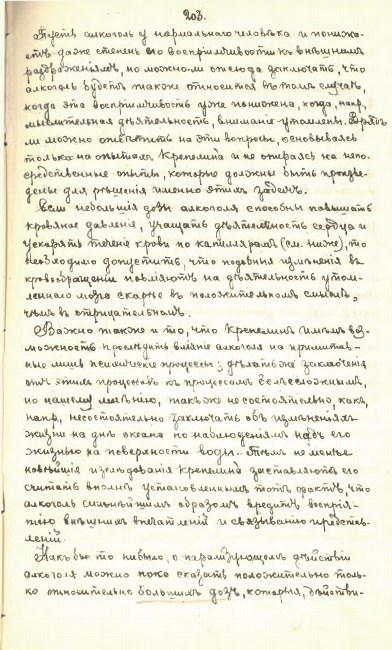 203.
Пусть алкоголь у нормальнаго человѣка и понижа-
етъ даже степень его воспріимчивости къ внѣшнимъ
раздраженіямъ, но можно-ли отсюда заключать, что
алкоголь будетъ также относится въ томъ случаѣ,
когда эта воспріимчивость уже понижена, когда, напр,
мыслительная дѣятельность, вниманіе утомлены. Врядъ
ли можно отвѣтить на эти вопросы, основываясь
только на опытахъ Крепелина и не опираясь на непо-
средственные опыты, которые должны быть произве-
дены для рѣшенія именно этихъ задачъ.
Если небольшія дозы алкоголя способны повышать
кровяное давленіе, учащать дѣятельность сердца и
ускорять теченіе крови по капиллярамъ (см. ниже), то
необходимо допустить, что подобныя измѣненія въ
кровообращеніи повліяютъ на дѣятельность утом-
леннаго мозга скорѣе въ положительномъ смыслѣ,
чѣмъ въ отрицательномъ.
Важно также и то, что Крепелинъ имѣлъ воз-
можность прослѣдить вліяніе алкоголя на примитив-
ные лишь психическіе процессы; дѣлать-же заключенія
отъ этихъ процессовъ къ процессамъ болѣе сложнымъ,
по нашему мнѣнію, также не состоятельно, какъ,
напр, несостоятельно заключать объ измѣненіяхъ
жизни на днѣ океана по наблюденіямъ надъ его
жизнью на поверхности воды. Тѣмъ не менѣе
новѣйшія изслѣдованія Крепелина заставляютъ его
считать вполнѣ установленнымъ тотъ фактъ, что
алкоголь сильнѣйшимъ образомъ вредитъ воспрія-
тію внѣшнихъ впечатлѣній и связыванію представ-
леній.
Какъ бы то ни было, о парализующемъ дѣйствіи
алкоголя можно пока сказать положительно толь-
ко относительно большихъ дозъ, которыя, дѣйстви-